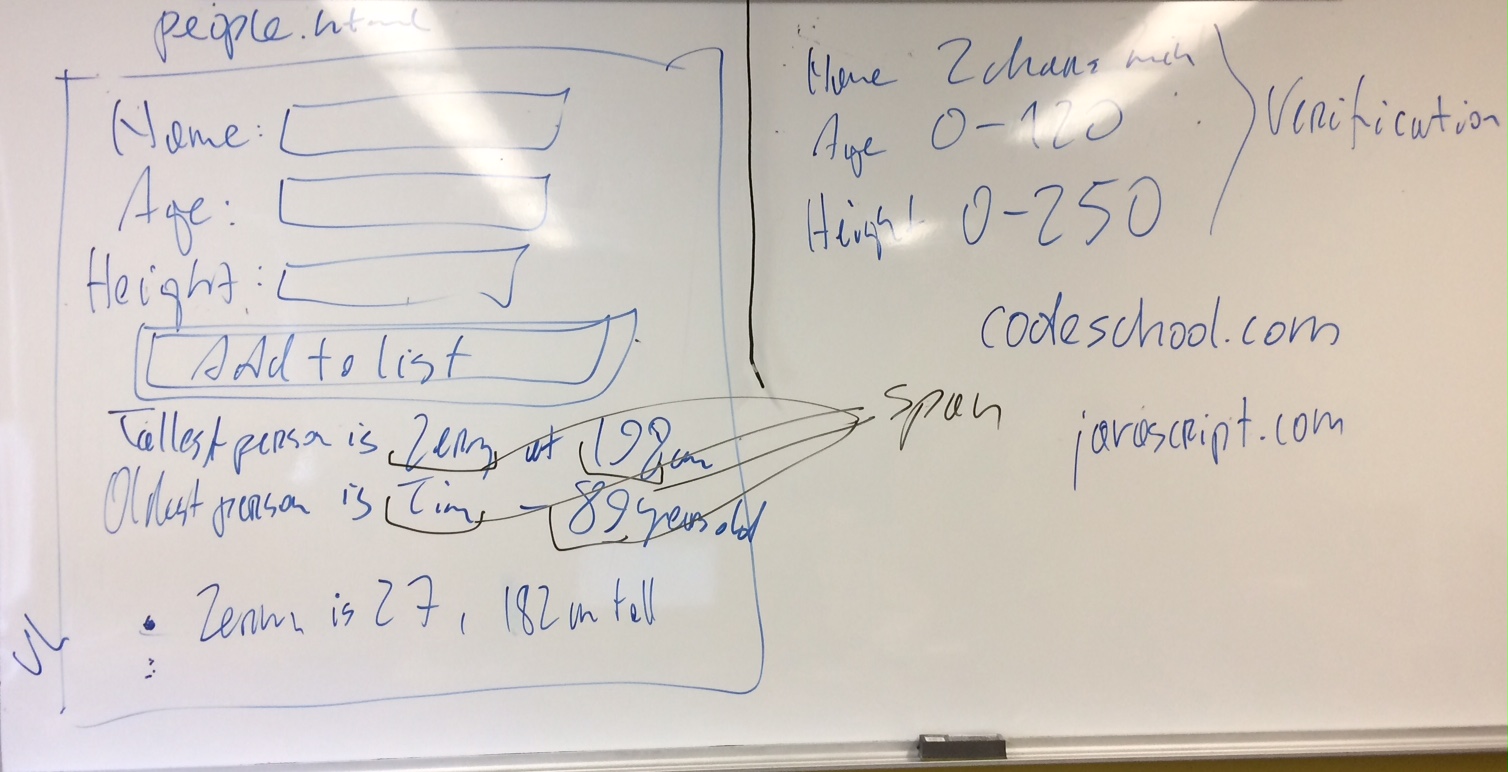 people.html
Name:
Age:
Height:
Add to list
Tallest person is at 198 cm
Oldest person is Tim - 89 years old
is 27, 182 cm tall
UL
Name 2 chars min
Age 0-120
Height 0-250
Verification
codeschool.com
span
javascript.com